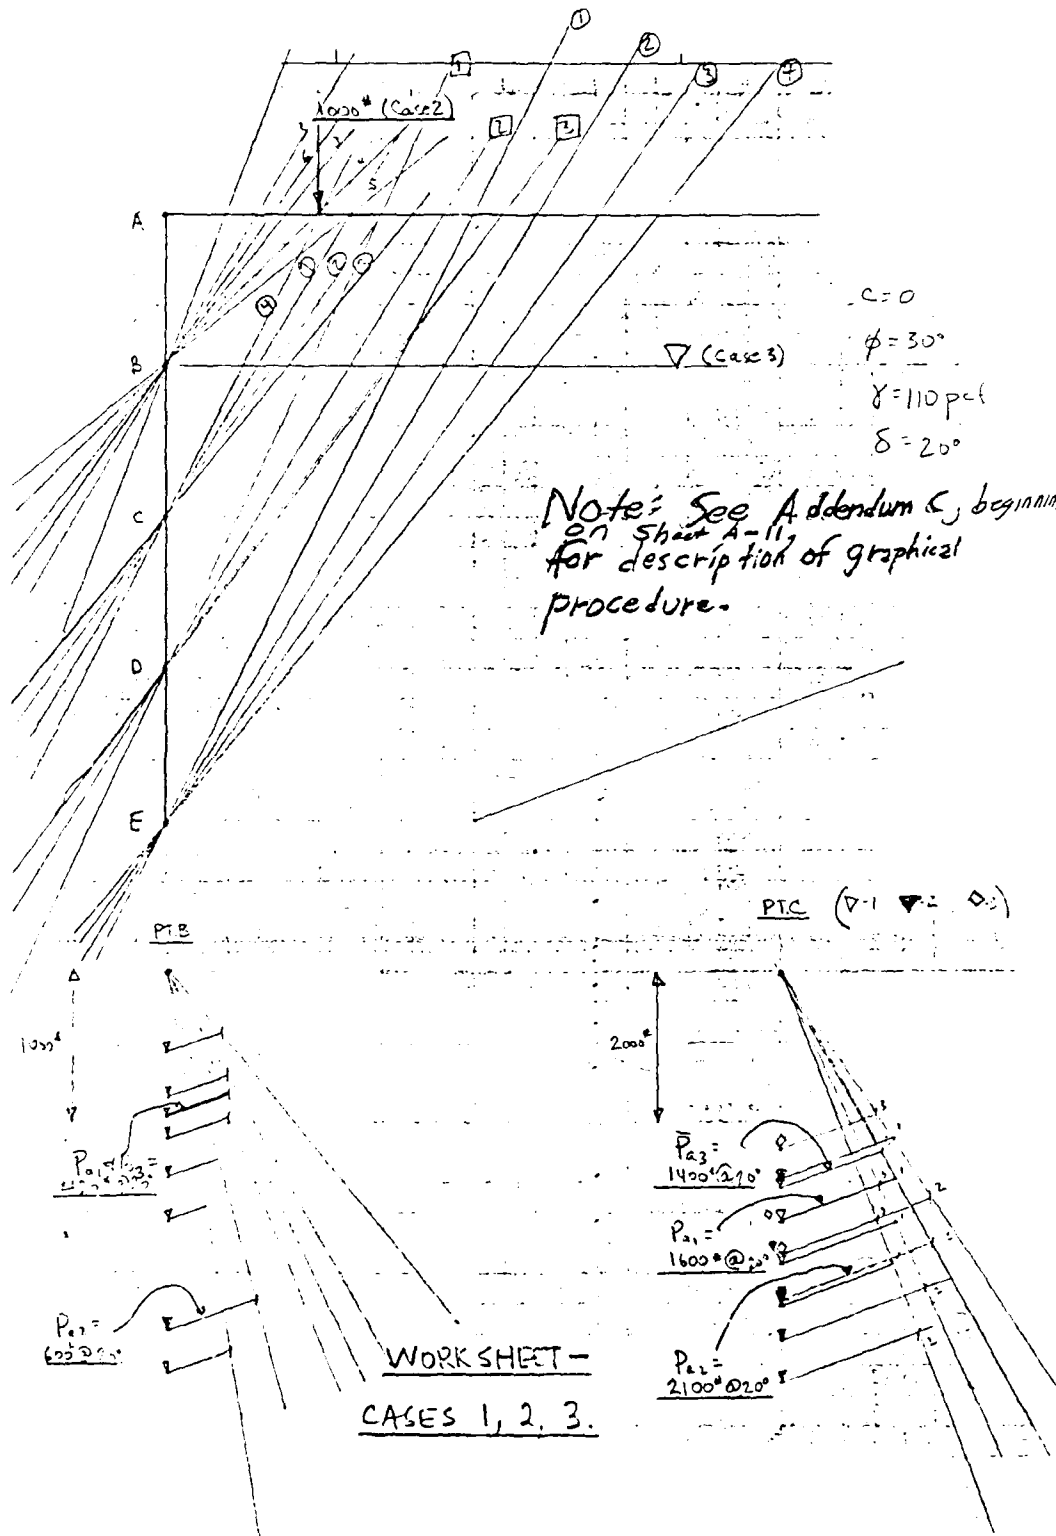 1
2
3
4
1
1000# (Case 2)
2
3
3
6
2
4
5
A
1
2
4
c=0
B
(Case 3)
φ=30°
γ=110 pcf
δ=20°
C
Note: See Addendum C, beginning
on Sheet A-11,
for description of graphical
procedure.
D
E
PT.B
PT.C
1000#
2000#
P̄a3=
1400# @20°
Pa1=
1600# @20°
Pa2=
600# @20°
Pa2=
2100# @20°
WORKSHEET-
CASES 1, 2, 3.